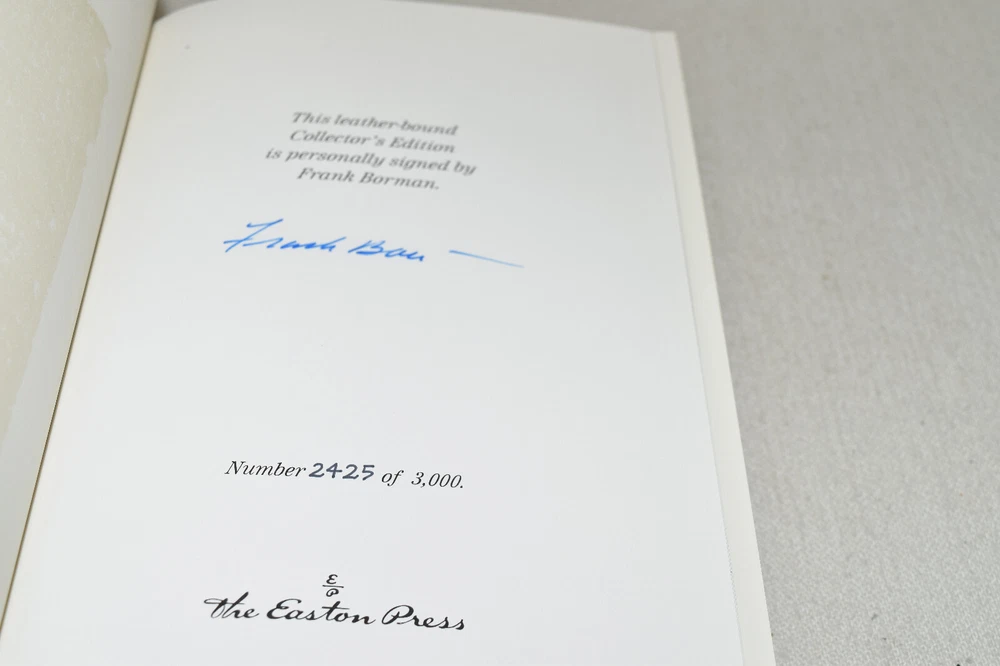 This leather-bound
Collector's Edition
is personally signed by
Frank Borman.
Frank Bor
Number 2425 of 3,000.
E
P
the Easton Press